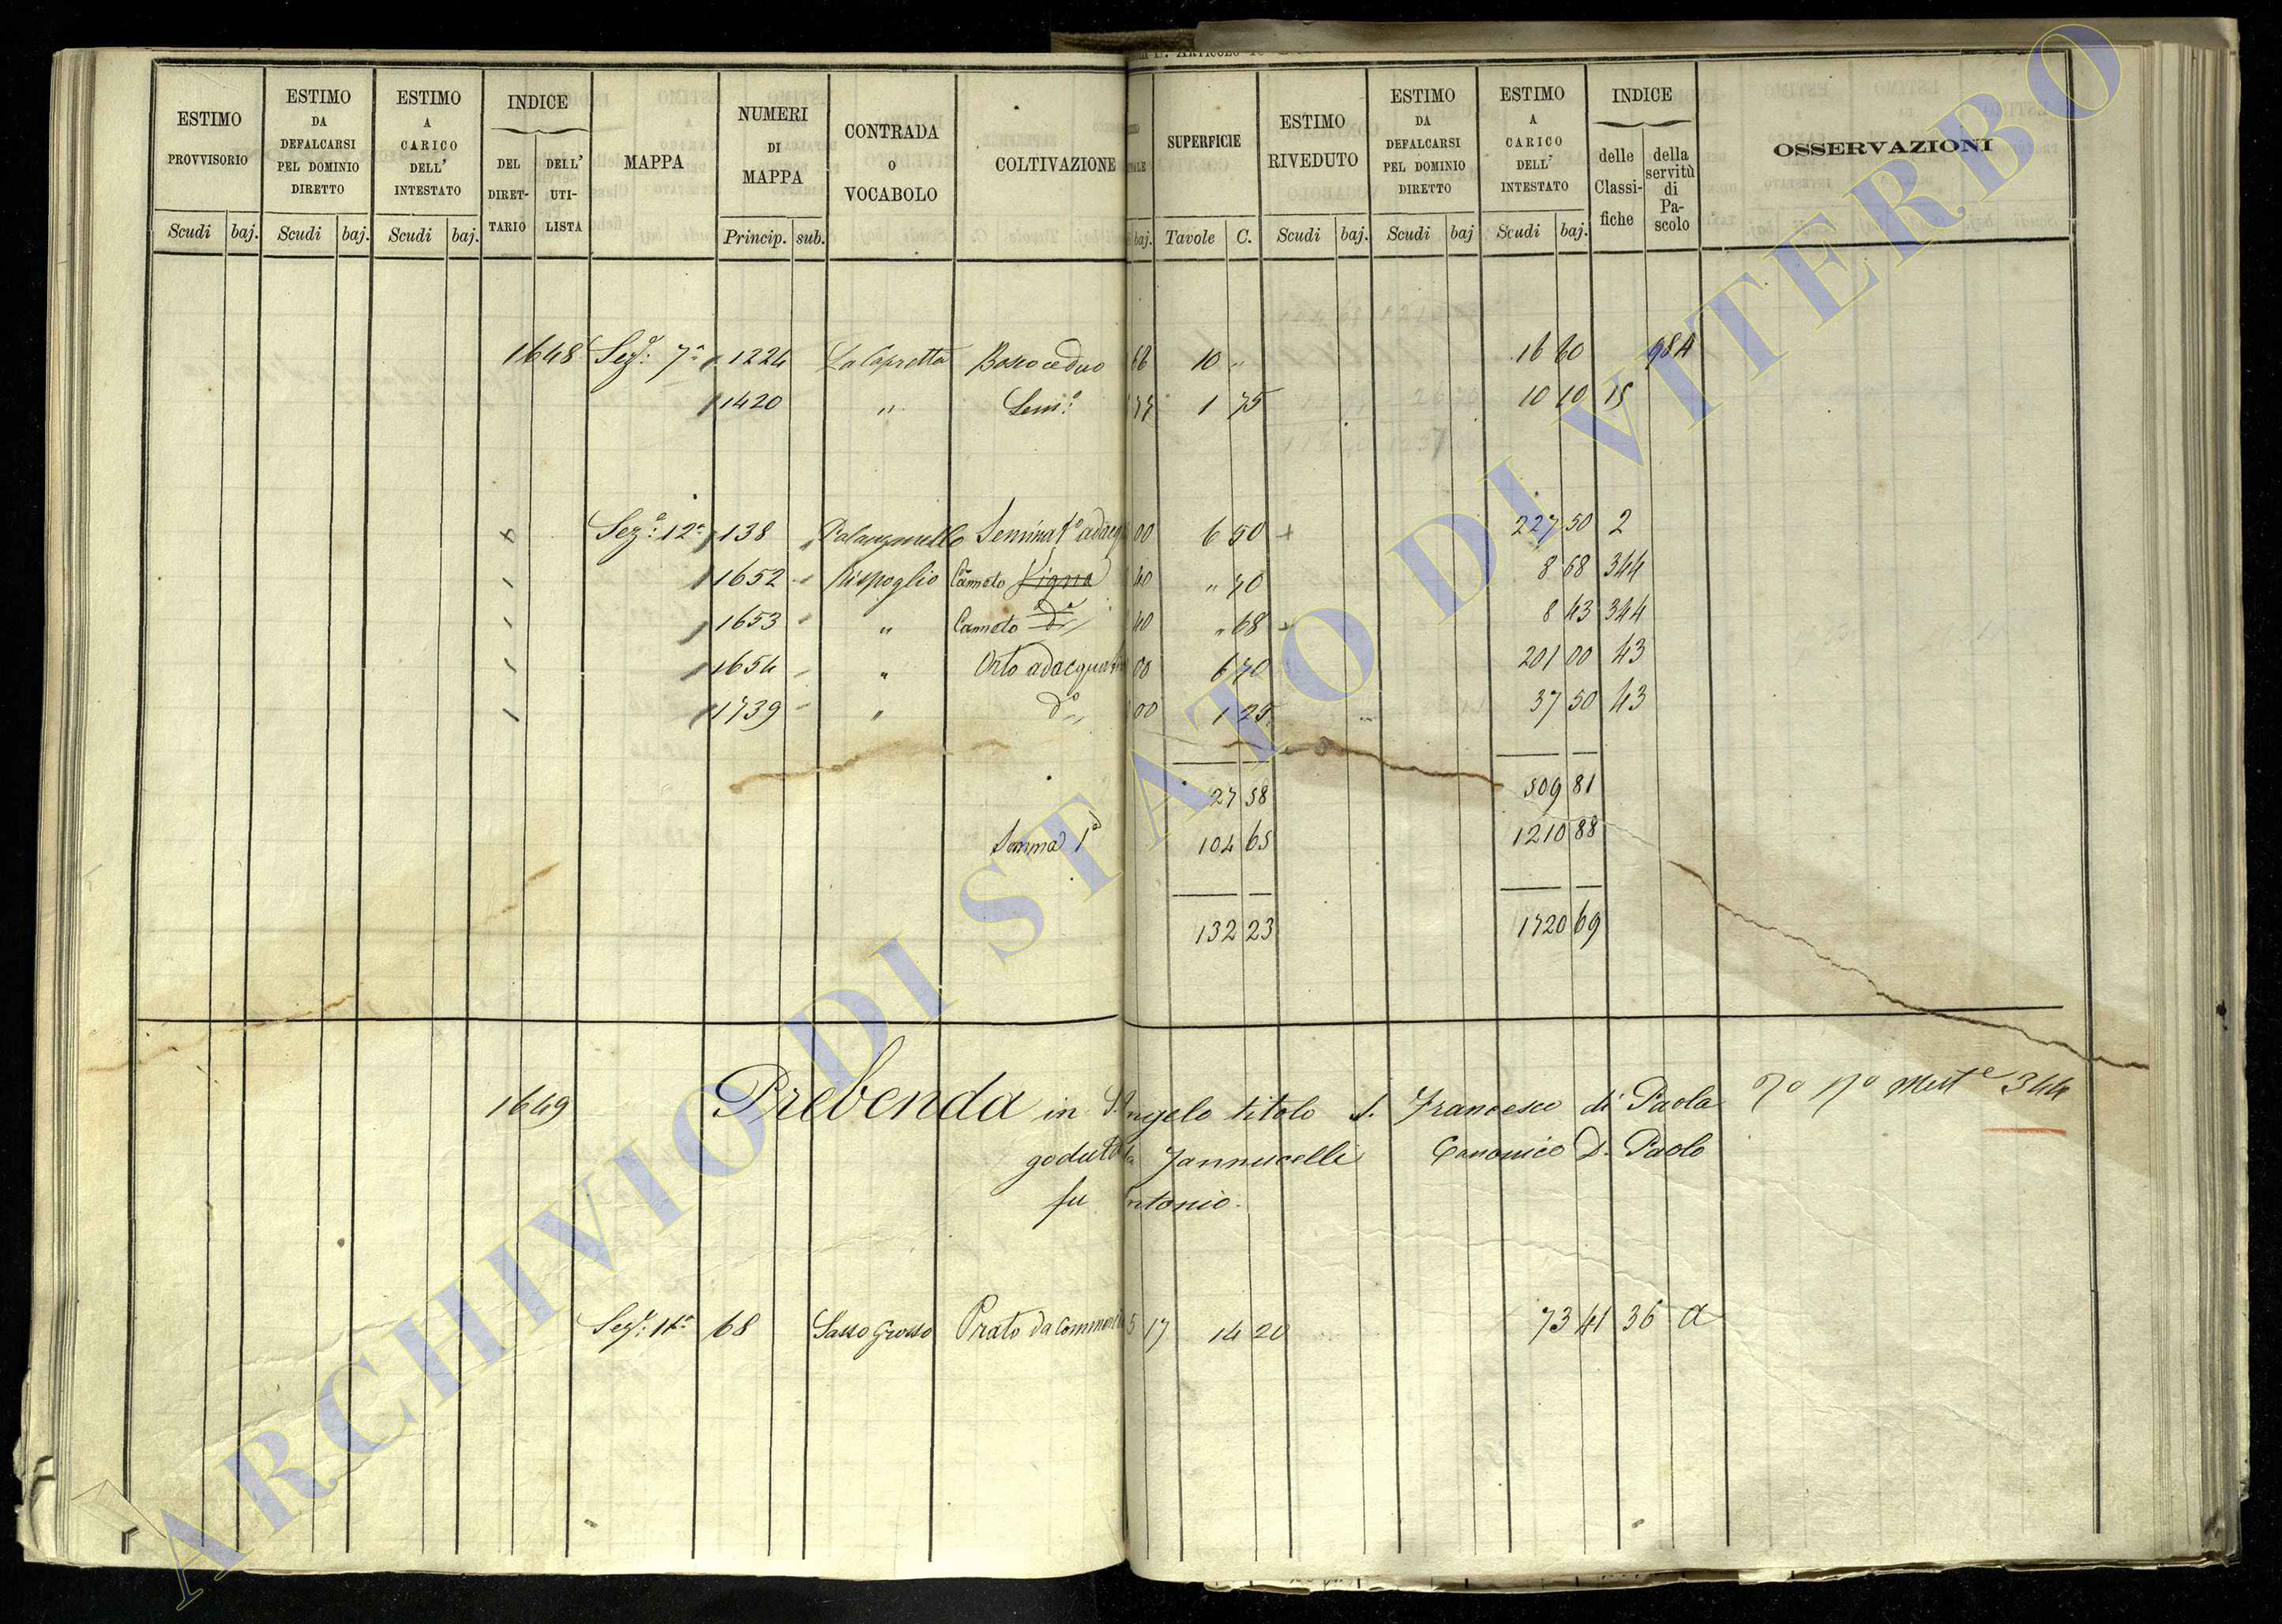 ESTIMO PROVVISORIO | ESTIMO DA DEFALCARSI PEL DOMINIO DIRETTO | ESTIMO A CARICO DELL' INTESTATO | INDICE | MAPPA | NUMERI DI MAPPA | CONTRADA o VOCABOLO | COLTIVAZIONE | SUPERFICIE | ESTIMO RIVEDUTO | ESTIMO DA DEFALCARSI PEL DOMINIO DIRETTO | ESTIMO A CARICO DELL' INTESTATO | INDICE | OSSERVAZIONI
DEL DIRET-TARIO | DELL' UTI-LISTA | delle Classi-fiche | della servitù di Pa-scolo
Scudi | baj. | Scudi | baj. | Scudi | baj. | Princip. | sub. | baj. | Tavole | C. | Scudi | baj. | Scudi | baj | Scudi | baj.
1648 Sezᵉ: 7ª 1224 La Capretta Bosco ceduo 66 10 " 16 60 98A
1420 " Semᵒ: 77 1 75 10 10 15
Sezᵉ: 12ª 138 Palanzanello Seminatᵒ adacq 00 6 50 227 50 2
1652 Rispoglio Canneto Vigna 40 " 70 8 68 344
1653 " Canneto dᵃ 40 " 68 8 43 344
1654 " Orto adacquativo 00 6 70 201 00 43
1739 " dᵒ " 00 1 25 37 50 43
27 58 509 81
Somma 1ª 104 65 1210 88
132 23 1720 69
1649 Prebenda in S. Angelo titolo S. Francesco di Paola 344
goduta da Jannucelli Canonico D. Paolo
fu Antonio.
Sezᵉ: 11ª 68 Sasso Grosso Prato da commercio 5 17 14 20 73 41 36 a
ARCHIVIO DI STATO DI VITERBO